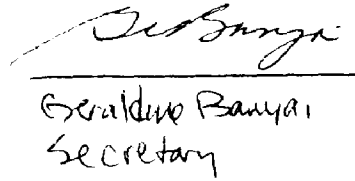 Geraldine Banyai
Secretary